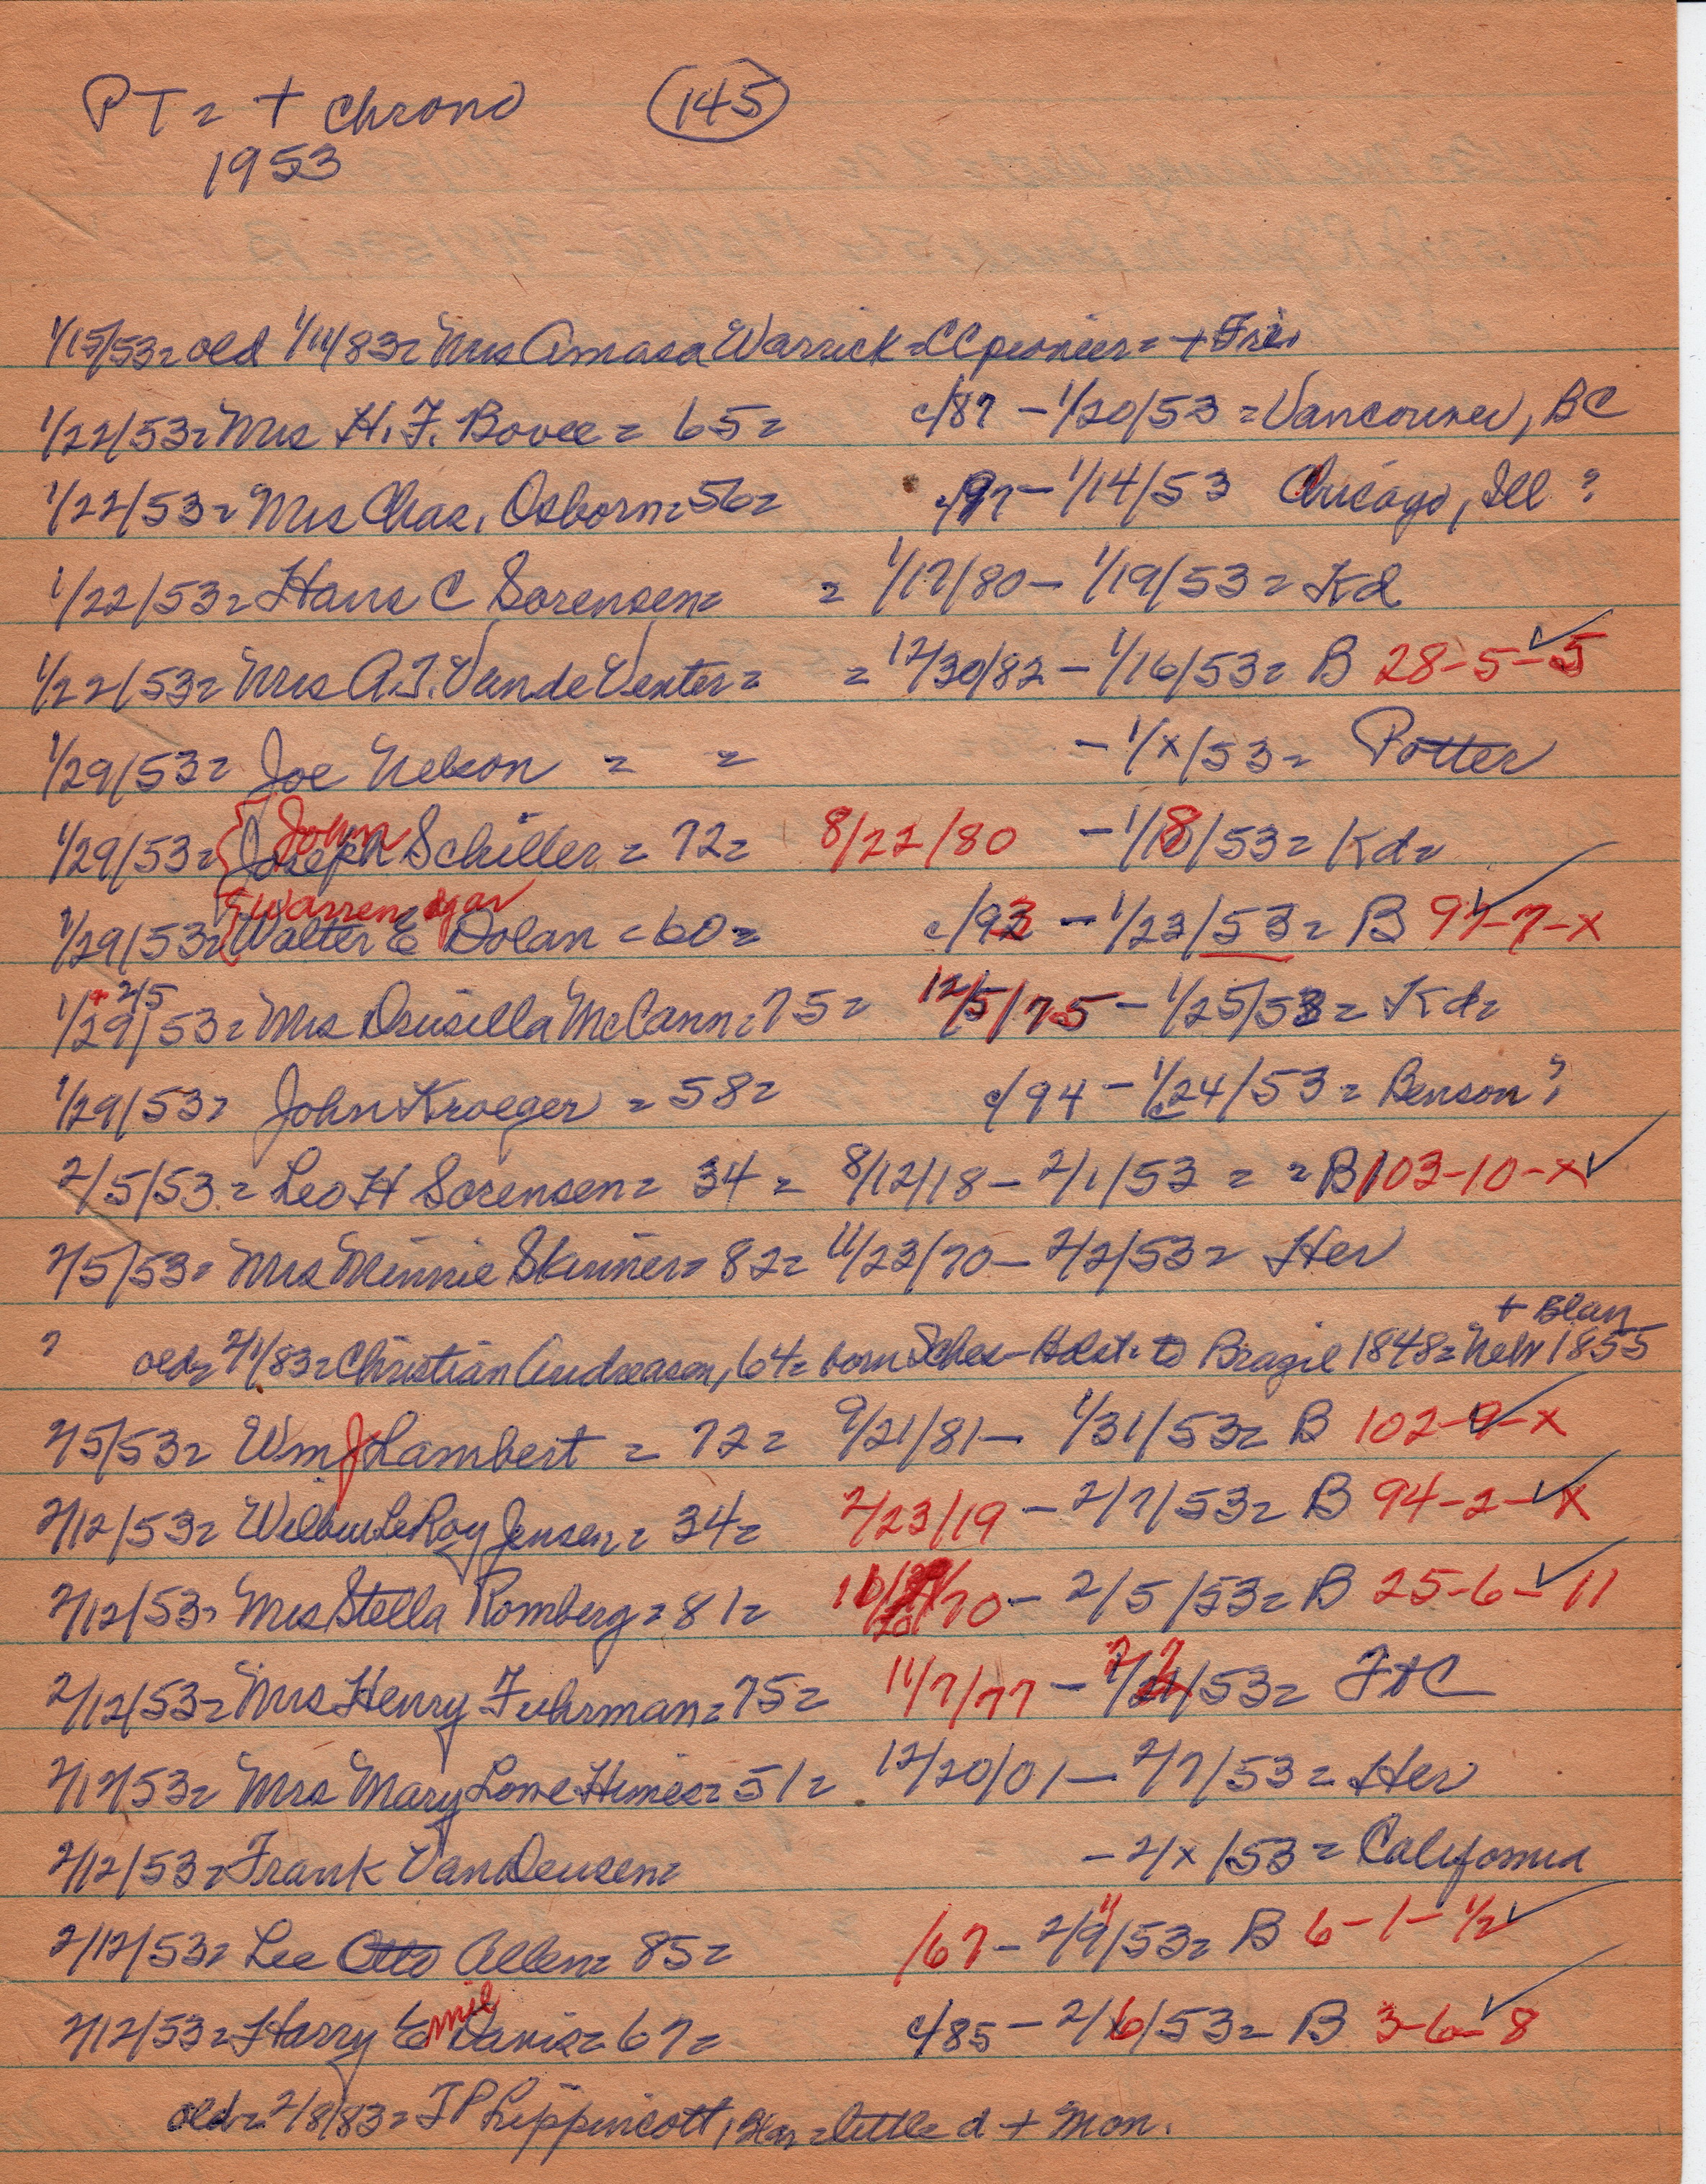 PT = + Chrono (145)
1953
1/15/53 = old 1/11/83 = Mrs Amasa Warrick = CC pioneer = + Fri.
1/22/53 = Mrs H. F. Bovee = 65 = c/87 – 1/20/53 = Vancouver, BC
1/22/53 = Mrs Chas. Osborn = 56 = c/97 – 1/14/53 Chicago, Ill ?
1/22/53 = Hans C Sorensen = = 1/17/80 – 1/19/53 = Kd
1/22/53 = Mrs A.T. VandeVenter = = 12/30/82 – 1/16/53 = B 28-5-5 ✓
1/29/53 = Joe Nelson = = – 1/x/53 = Potter
John
1/29/53 = Joseph Schiller = 72 = 8/22/80 – 1/18/53 = Kd =
Warren dgar
1/29/53 = Walter E Dolan = 60 = c/93 – 1/23/53 = B 97-7-x ✓
+ 2/5
1/29/53 = Mrs Drusilla McCann = 75 = 12/5/75 – 1/25/53 = Kd =
1/29/53 = John Kroeger = 58 = c/94 – 1/24/53 = Benson ?
2/5/53 = Leo H Sorensen = 34 = 8/12/18 – 2/1/53 = = B 103-10-x ✓
2/5/53 = Mrs Minnie Skinner = 82 = 11/23/70 – 2/2/53 = Her
+ Blan
? old = 2/1/83 = Christian Andreason, 64 = born Schles-Holst = to Brazil 1848 = Neb 1855
2/5/53 = Wm J Lambert = 72 = 9/21/81 – 1/31/53 = B 102-9-x ✓
2/12/53 = Wilbur LeRoy Jensen = 34 = 2/23/19 – 2/7/53 = B 94-2-x ✓
2/12/53 = Mrs Stella Romberg = 81 = /70 – 2/5/53 = B 25-6-11 ✓
2/12/53 = Mrs Henry Fuhrman = 75 = 11/7/77 – 2/2/53 = FtC
2/12/53 = Mrs Mary Lone Himes = 51 = 12/20/01 – 2/7/53 = Her
2/12/53 = Frank VanDeusen = – 2/x/53 = California
2/12/53 = Lee Otto Allen = 85 = /67 – 2/9/53 = B 6-1-1/2 ✓
mil
2/12/53 = Harry E Davis = 67 = c/85 – 2/6/53 = B 3-6-8 ✓
old = 2/8/83 = J P Lippincott, Blan = little d + Mon.